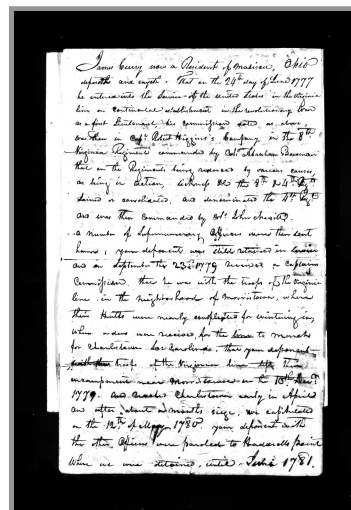 James Curry now a Resident of Madison, Ohio
deposeth and sayeth - That on the 24th day of June 1777
he entered into the Service of the United States in the Virginia
line on continental establishment in the revolutionary War
as a first Lieutenant, his commission dated as above,
was then in Capt. Robt Higgins's Company in the 8th
Virginia Regiment commanded by Col. Abraham Bowman
that on the Regiments being reduced by various causes
as being in action, Sickness &c the 8th & 4th Regts
joined or consolidated, and denominated the 4th Regt
and was then commanded by Col. John Neville.
a number of Supernumerary Officers were then sent
home, your deponent was still retained in
and on September the 23d 1779 received a Captains
Commission, that he was with the troops of the Virginia
line in the neighborhood of Morristown, where
their Hutts were nearly compleated for wintering in,
When orders were received for the line to march
for Charlestown So. Carolina, that your deponent
with the troops of the Virginia line left their
encampment near Morristown on the 10th Decr
1779. and reached Charlestown early in April
and after about a months siege, we capitulated
on the 12th of May 1780 your deponent with
the other Officers were paroled to Haddrells point
Where we were detained until July 1781.